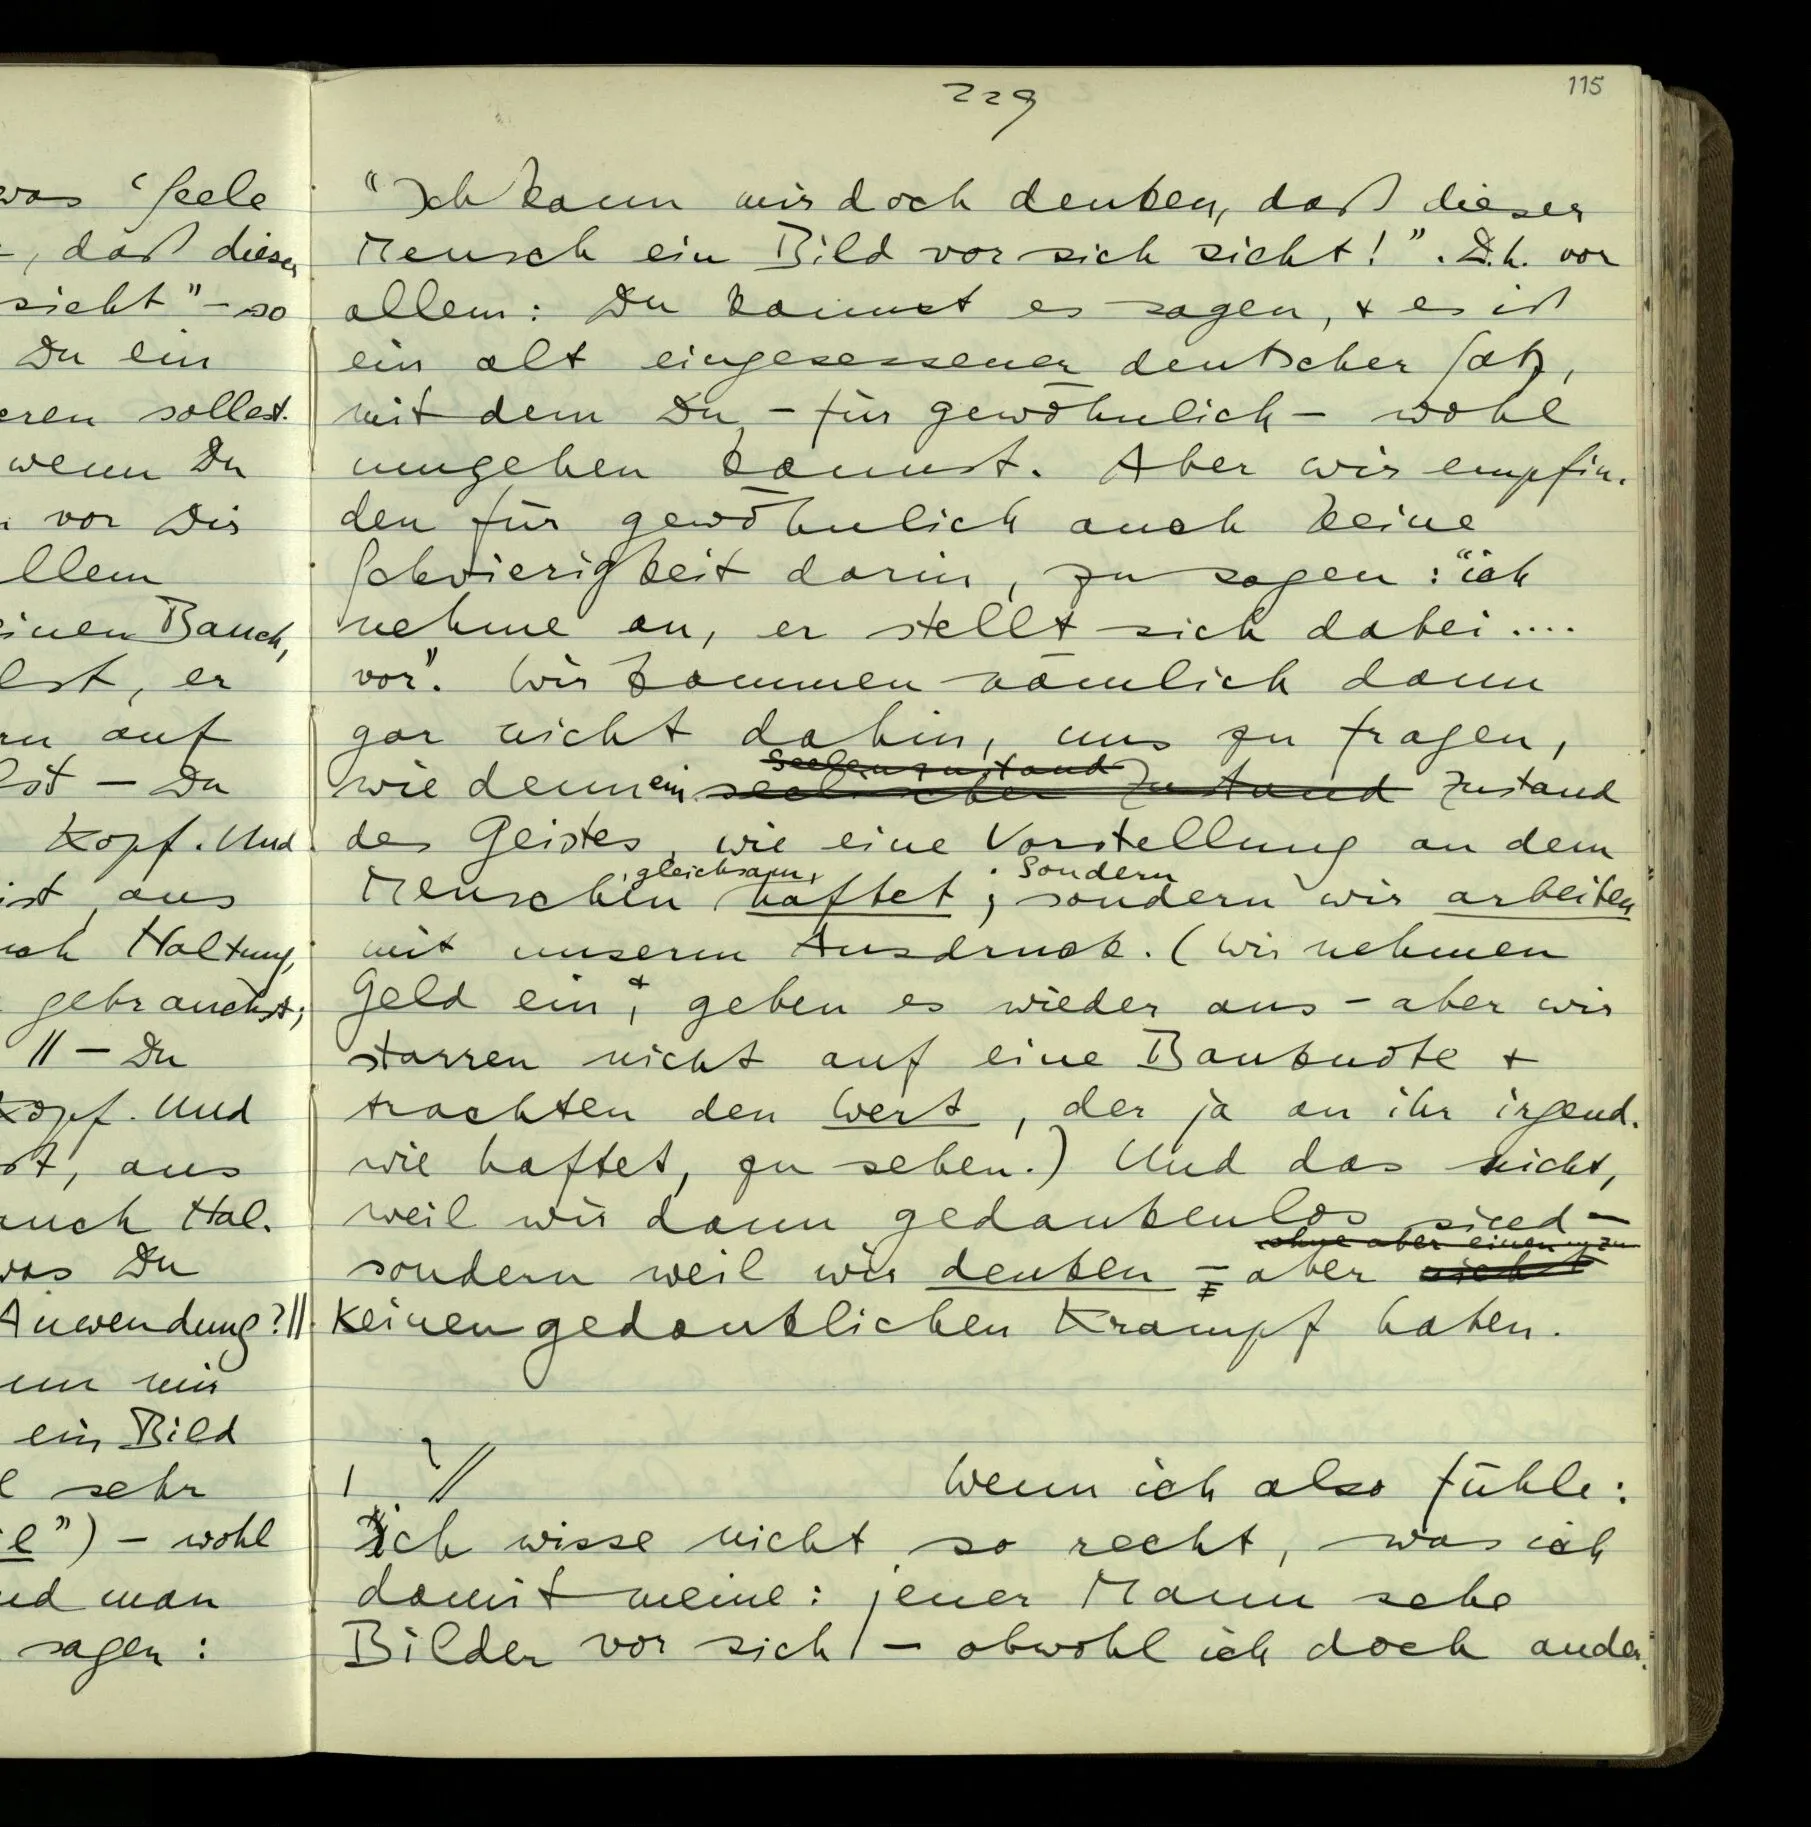 was 'Seele
, daß dieser
sieht" – so
Du ein
eren sollst.
wenn Du
vor Dir
llem
einen Bauch,
lst, er
rn auf
lst – Du
Kopf. Und
ist, aus
uch Haltung,
gebrauchst;
// – Du
Kopf. Und
st, aus
auch Hal-
was Du
Anwendung? //
nn mir
ein Bild
l sehr
") – wohl
nd man
sagen:
229
115
"Ich kann mir doch denken, daß dieser
Mensch ein Bild vor sich sieht!". D.h. vor
allem: Du kannst es sagen, + es ist
ein alt eingesessener deutscher Satz,
mit dem Du – für gewöhnlich – wohl
umgehen kannst. Aber wir empfin-
den für gewöhnlich auch keine
Schwierigkeit darin, zu sagen: "ich
nehme an, er stellt sich dabei ....
vor". Wir kommen nämlich dann
gar nicht dahin, uns zu fragen,
Seelenzustand
wie denn ein seelischer Zustand Zustand
des Geistes, wie eine Vorstellung an dem
gleichsam, . Sondern
Menschen haftet; sondern wir arbeiten
mit unserm Ausdruck. (Wir nehmen
Geld ein, + geben es wieder aus – aber wir
starren nicht auf eine Banknote +
trachten den Wert, der ja an ihr irgend-
wie haftet, zu sehen.) Und das nicht,
weil wir dann gedankenlos sind –
ohne aber einen zu
sondern weil wir denken – aber nicht
keinen gedanklichen Krampf haben.
| ? // Wenn ich also fühle:
ich wisse nicht so recht, was ich
damit meine: jener Mann sehe
Bilder vor sich | – obwohl ich doch ander-